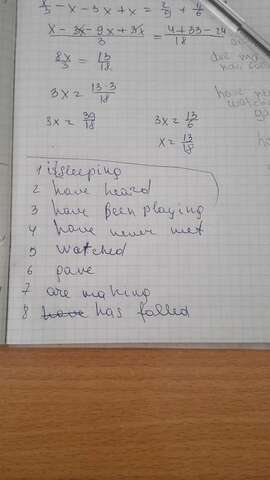 x/3 - x - 3x + x = 2/9 + 4/6
x - 3x - 9x + 3x / 3 = 4 + 33 - 24 / 18
8x/3 = 13/18
3x = 13·3/18
3x = 39/18 3x = 13/6
x = 13/18
1 is sleeping
2 have heard
3 have been playing
4 have never met
5 watched
6 gave
7 are making
8 have has falled